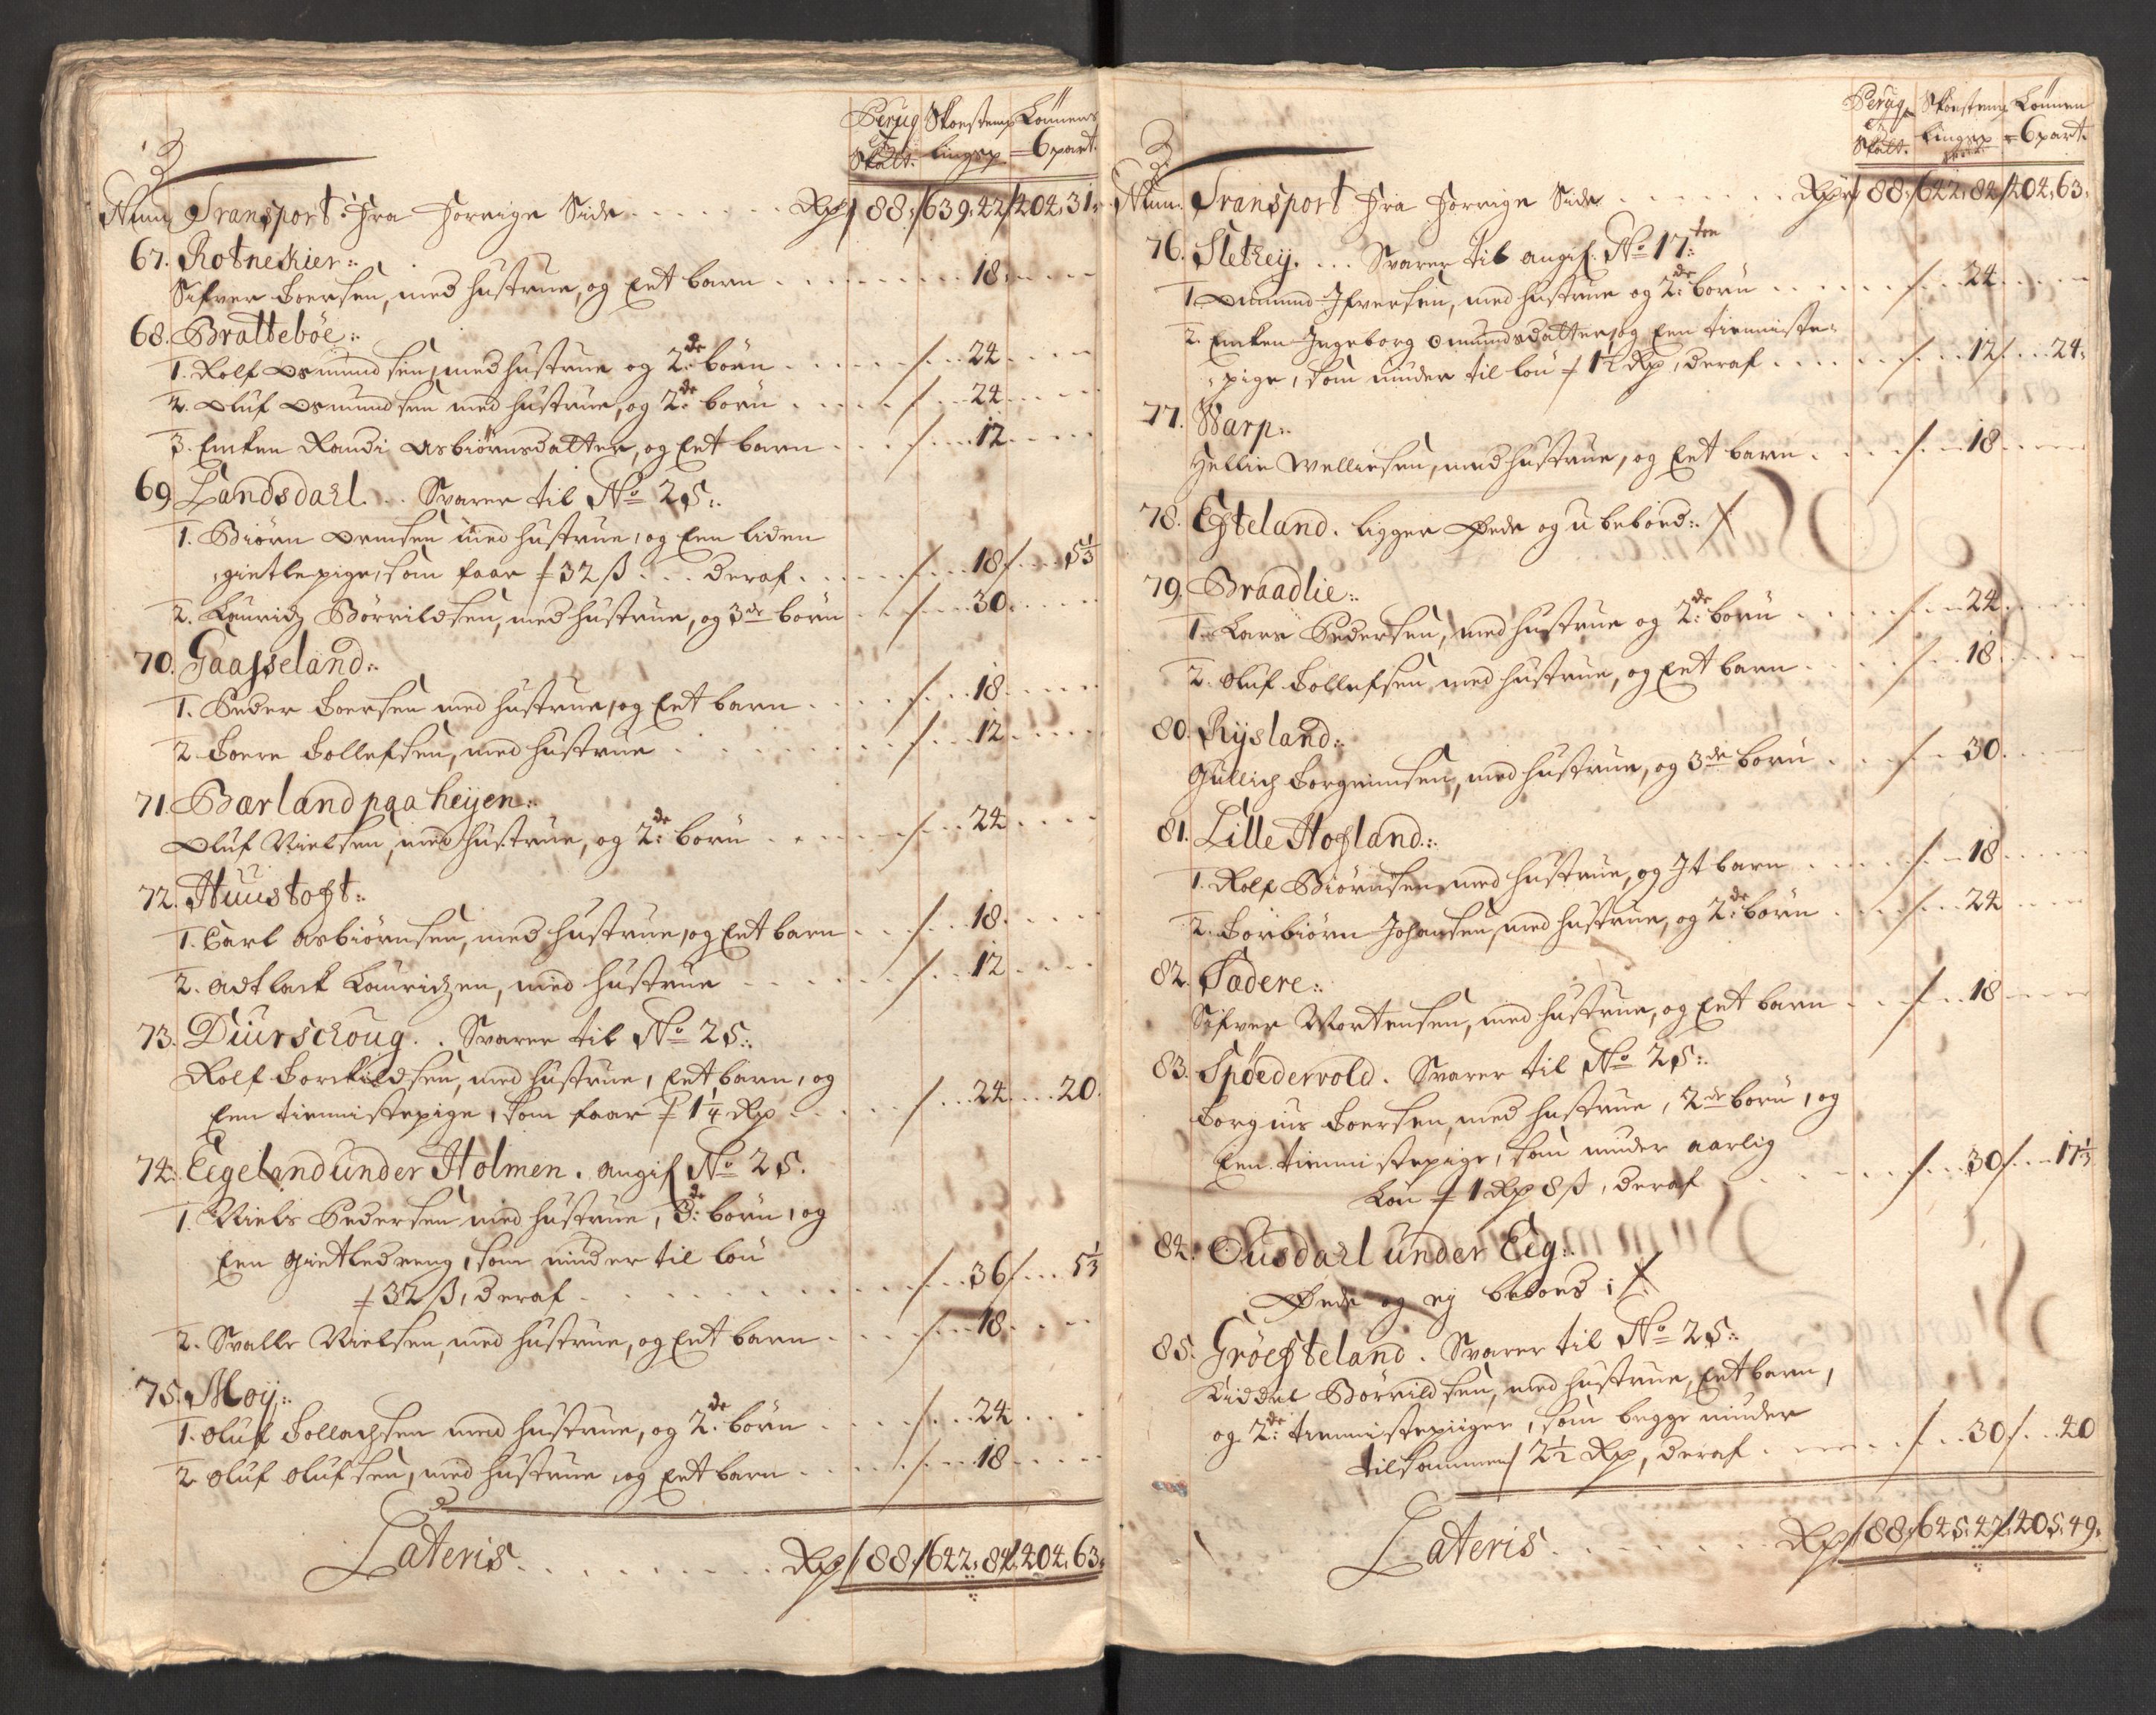 Perüg Skoesteens Lönnens
et
Skatt. lingsp = 6 part.
Num Transport: Fra Forrige Side Rdr 88: 639. 42 404. 31.
67. Rotneskier:.
Sifver Toersen, med hustrue, og Eet barn 18
68. Brattebøe:.
1. Rolf Osmundsen, med hustrue og 2de børn 24
2. Oluf Osmundsen med hustrue, og 2de børn 24
3. Encken Randi Asbiörnsdatter, og Eet barn 12
69 Landsdahl... Svarer til No 25:.
1. Biörn Ormsen med hustrue, og Een liden
gietlepige, som faar 32 ß... deraf 18 5⅓
2. Lauridz Börrildsen, med hustrue, og 3de børn 30
70. Gaasseland:.
1. Peder Toersen med hustrue, og Eet barn 18
2. Toere Tollefsen, med hustrue 12
71. Bærland paa heijen:.
Oluf Nielsen, med hustrue, og 2de børn 24
72. Huustoft:.
1. Carl Asbiörnsen, med hustrue, og Eet barn 18
2. Adtlack Lauridzen, med hustrue 12
73. Diurschoug.. Svarer til No 25:.
Rolf Torkildsen, med hustrue, Eet barn, og
Een tienniste pige, som faar 1¼ Rdr 24 20.
74. Eegeland under Holmen. angif No 25.
1. Niels Pedersen med hustrue, 3de børn, og
Een gietledreng, som nÿder til løn
32 ß, deraf 36 5⅓
2. Svalle Nielsen, med hustrue, og Eet barn 18
75. Moij:.
1. Oluf Tollachsen med hustrue, og 2de børn 24
2. Oluf Olufsen, med hustrue, og Eet barn 18
Lateris Rdr 88: 642: 84 404. 63:
Perüg Skoesteens Lönnen
et
Skatt. lingsp = 6 part.
Num. Transport Fra Forrige Side Rdr 88: 642. 84 404. 63.
76. Sletheij... Svarer til angif. No 17:ten
1. Omund Ifversen, med hustrue og 2de børn 24
2. Encken Ingeborg Omundsdatter, og Een tienniste
pige, som nÿder til løn 1½ Rdr, deraf 12 24:
77. Warp:.
Hellie Wellersen, med hustrue, og Eet barn 18
78. Efteland. ligger Øde og ubeboed:.
79. Braadlie:.
1. Lars Pedersen, med hustrue og 2de børn 24
2. Oluf Tollefsen med hustrue, og Eet barn 18
80. Rijsland:.
Gullich Torgrimsen, med hustrue, og 3de børn 30
81. Lille Hofland:.
1. Rolf Biörnsen med hustrue, og It barn 18
2. Torbiörn Johansen, med hustrue, og 2de børn 24
82. Sadere:.
Søfver Mortensen, med hustrue, og Eet barn 18
83. Spøedervold. Svarer til No 25:.
Torgius Toersen, med hustrue, 2de børn, og
Een tienniste pige, som nÿder aarlig
løn 1 Rdr 8 ß, deraf 30 17⅓
84. Ousdahl under Eeg:.
Øede og eij beboed:
85. Gröefteland. Svarer til No 25:.
Kiddel Börrildsen, med hustrue, Eet barn,
og 2de tienniste piiger, som begge nÿder
tilsammen 2½ Rdr, deraf 30 40
Lateris Rdr 88: 645: 42 405. 49.